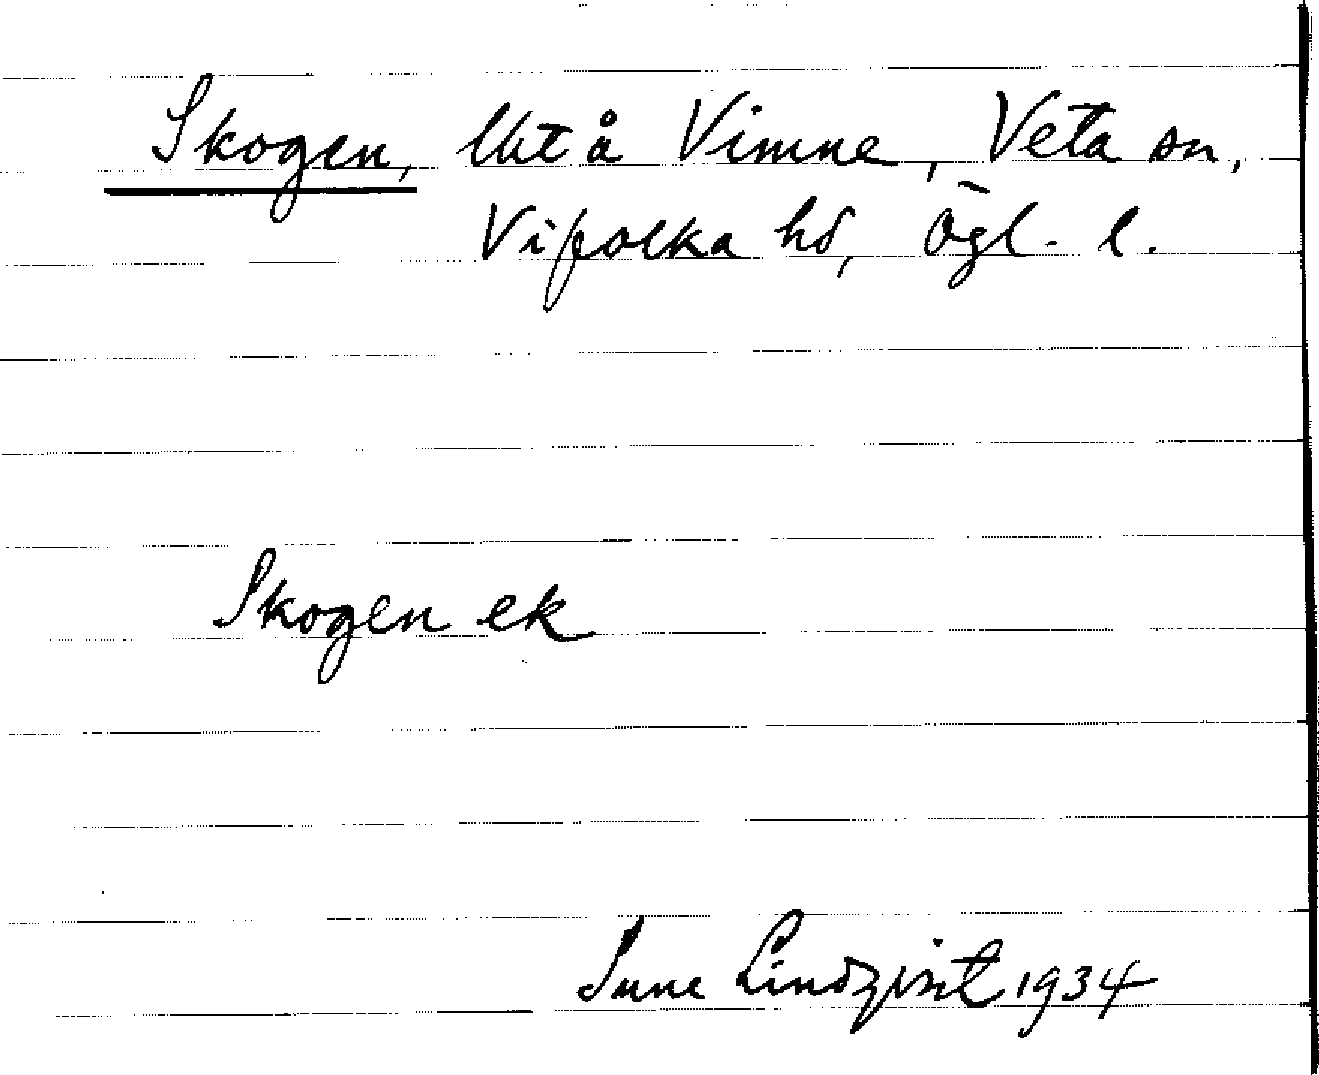 Skogen, lht å Vimne, Veta sn,
Vifolka hd, Ögl. l.
Skogen ek
Sune Lindqvist 1934